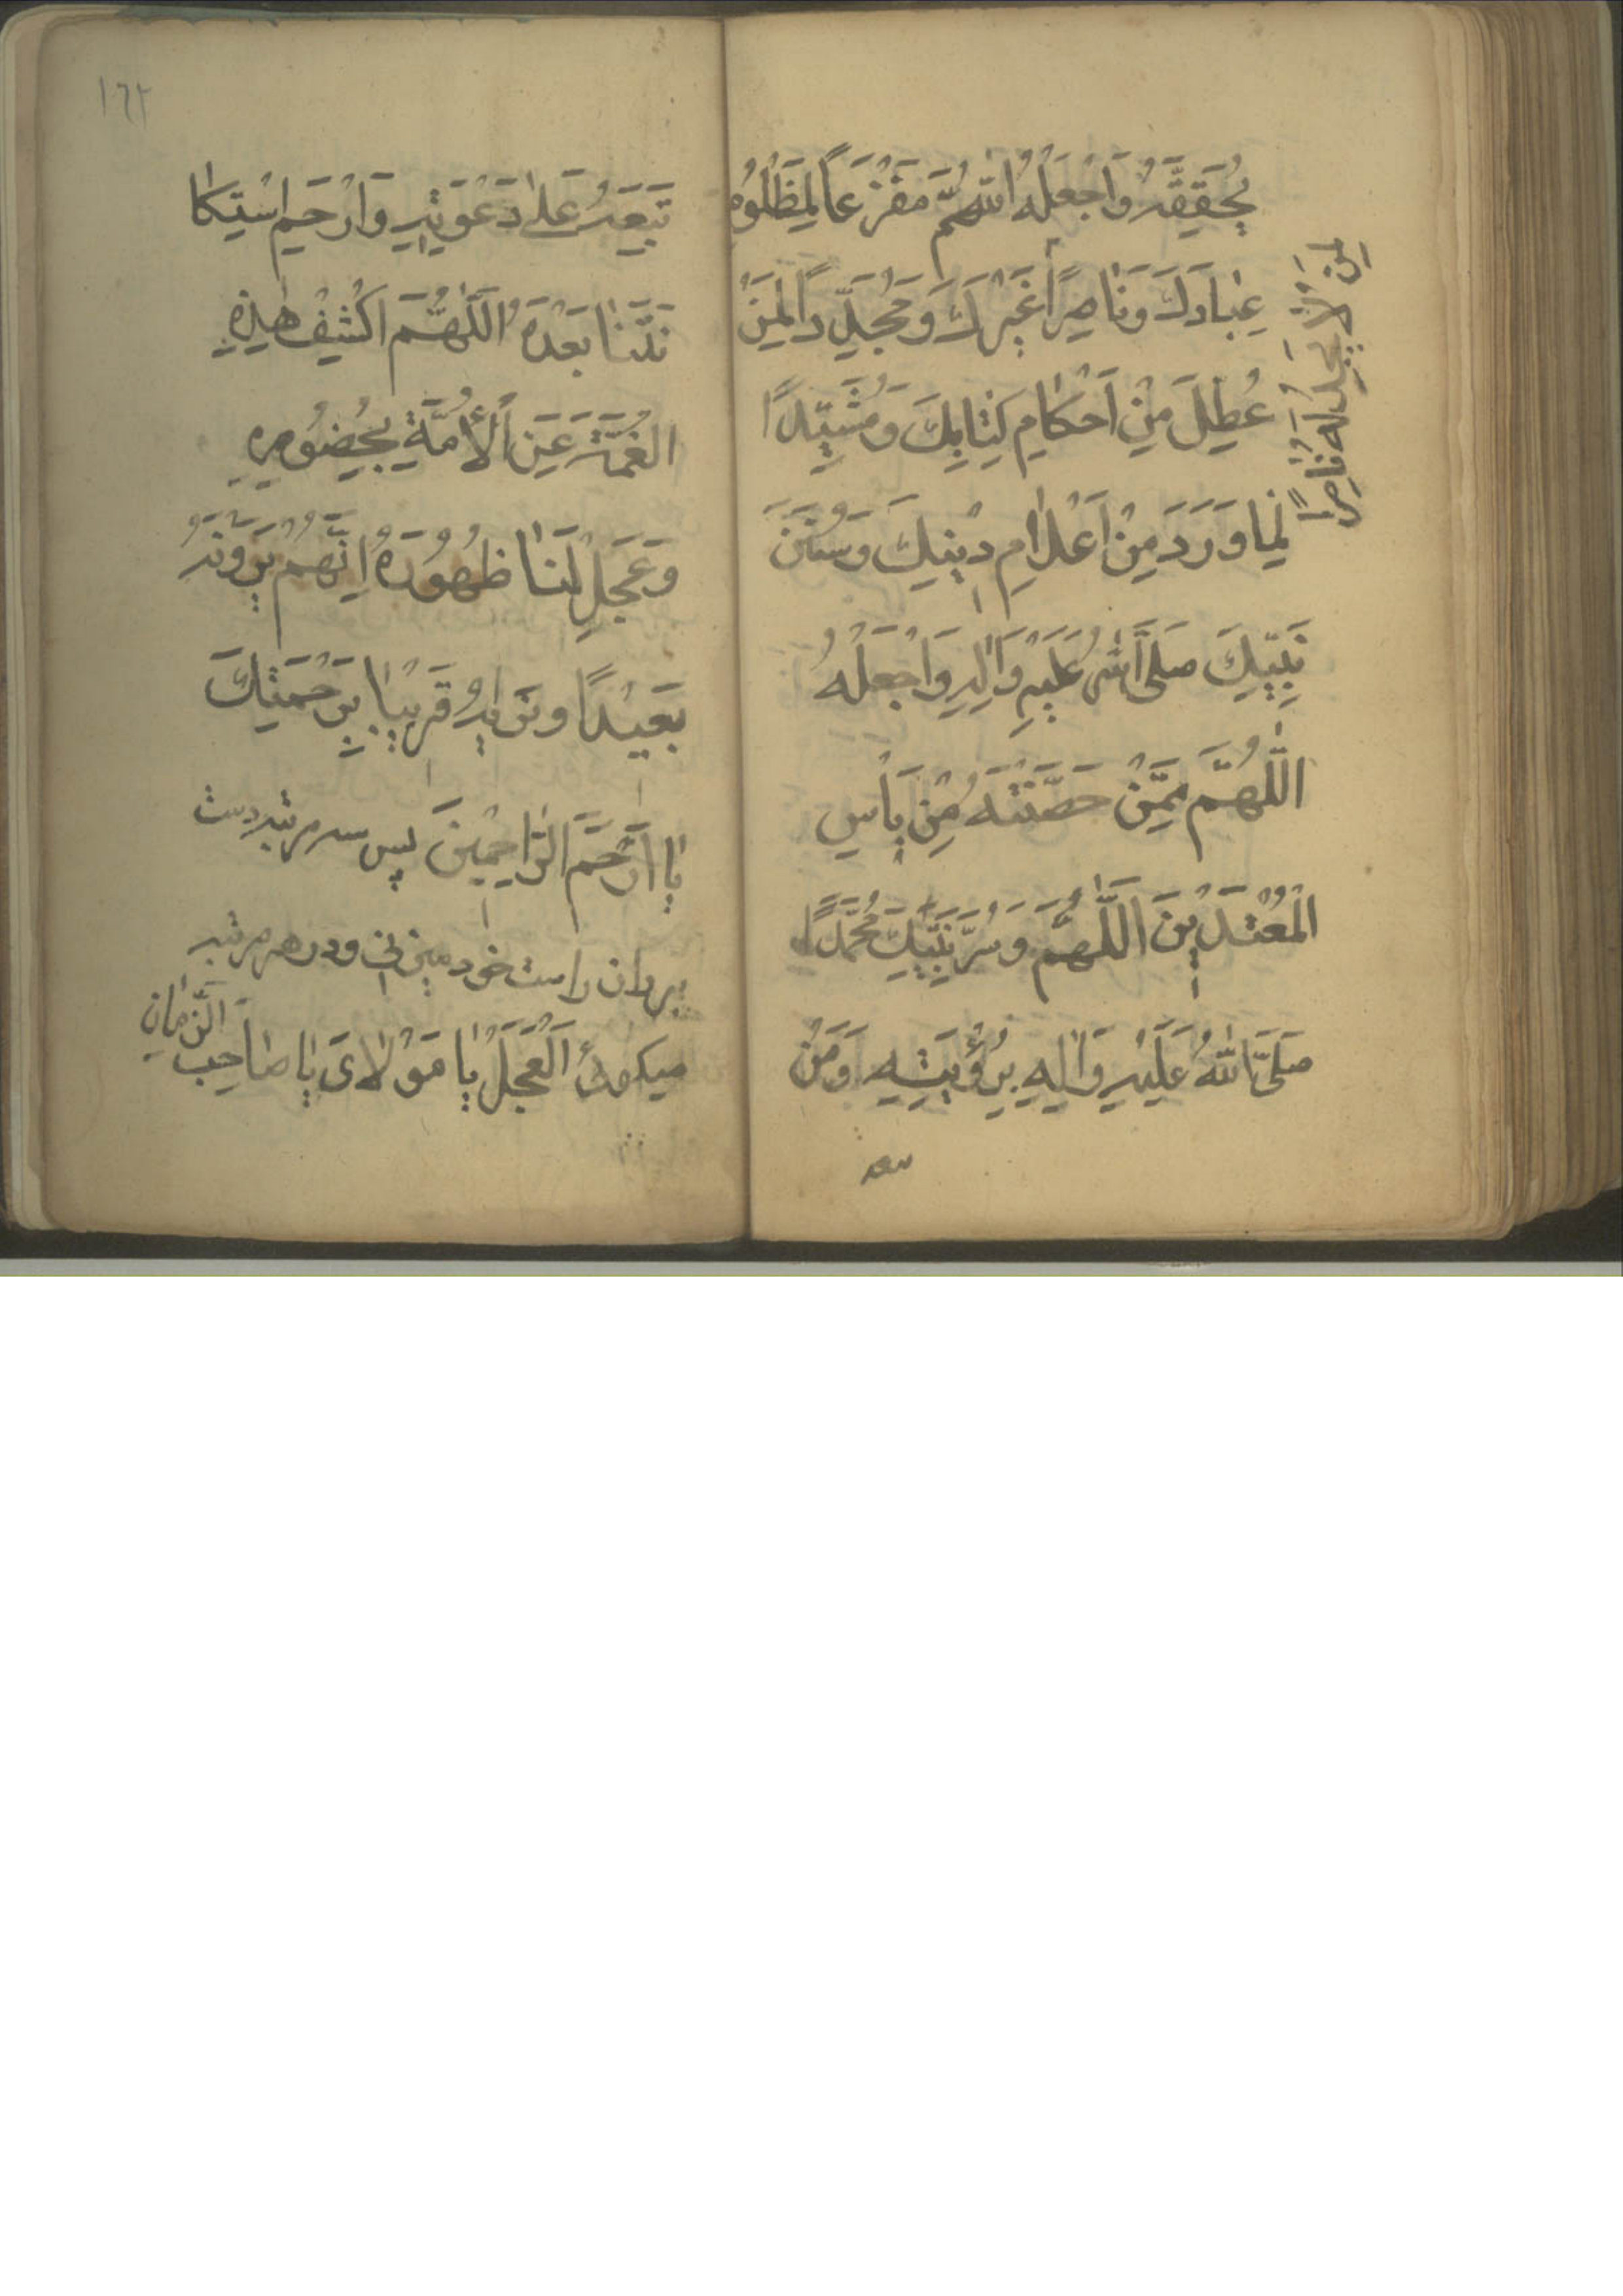 يُحَقِّقَهُ وَاجْعَلْهُ اللّٰهُمَّ مَفْزَعاً لِمَظْلُومِ
عِبٰادِكَ وَنٰاصِرًا
لِمَنْ لاٰ يَجِدُ لَهُ نٰاصِرًا
غَيْرَكَ وَمُجَدِّدًا لِمٰا
عُطِّلَ مِنْ اَحْكٰامِ كِتٰابِكَ وَمُشَيِّدًا
لِمٰا وَرَدَ مِنْ اَعْلاٰمِ دٖينِكَ وَسُنَنِ
نَبِيِّكَ صَلَّى اللّٰهُ عَلَيْهِ وَاٰلِهِ وَاجْعَلْهُ
اَللّٰهُمَّ مِمَّنْ حَصَّنْتَهُ مِنْ بَاْسِ
الْمُعْتَدٖينَ اَللّٰهُمَّ وَسُرَّ نَبِيَّكَ مُحَمَّدًا
صَلَّى اللّٰهُ عَلَيْهِ وَاٰلِهِ بِرُؤْيَتِهِ وَمَنْ
تبعه
١٦٢
تَبِعَهُ عَلىٰ دَعْوَتِهِ وَارْحَمِ اسْتِكٰا
نَتَنٰا بَعْدَهُ اَللّٰهُمَّ اكْشِفْ هٰذِهِ
الْغُمَّةَ عَنِ الْأُمَّةِ بِحُضُورِهِ
وَعَجِّلْ لَنٰا ظُهُورَهُ اِنَّهُمْ يَرَوْنَهُ
بَعٖيدًا وَنَرٰاهُ قَرٖيبًا بِرَحْمَتِكَ
يٰا اَرْحَمَ الرّٰاحِمٖينَ پس سه مرتبه دست
بر ران راست خود میزنی و در هر مرتبه
میگوئی اَلْعَجَلَ يٰا مَوْلاٰىَ يٰا صٰاحِبَ الزَّمٰانِ